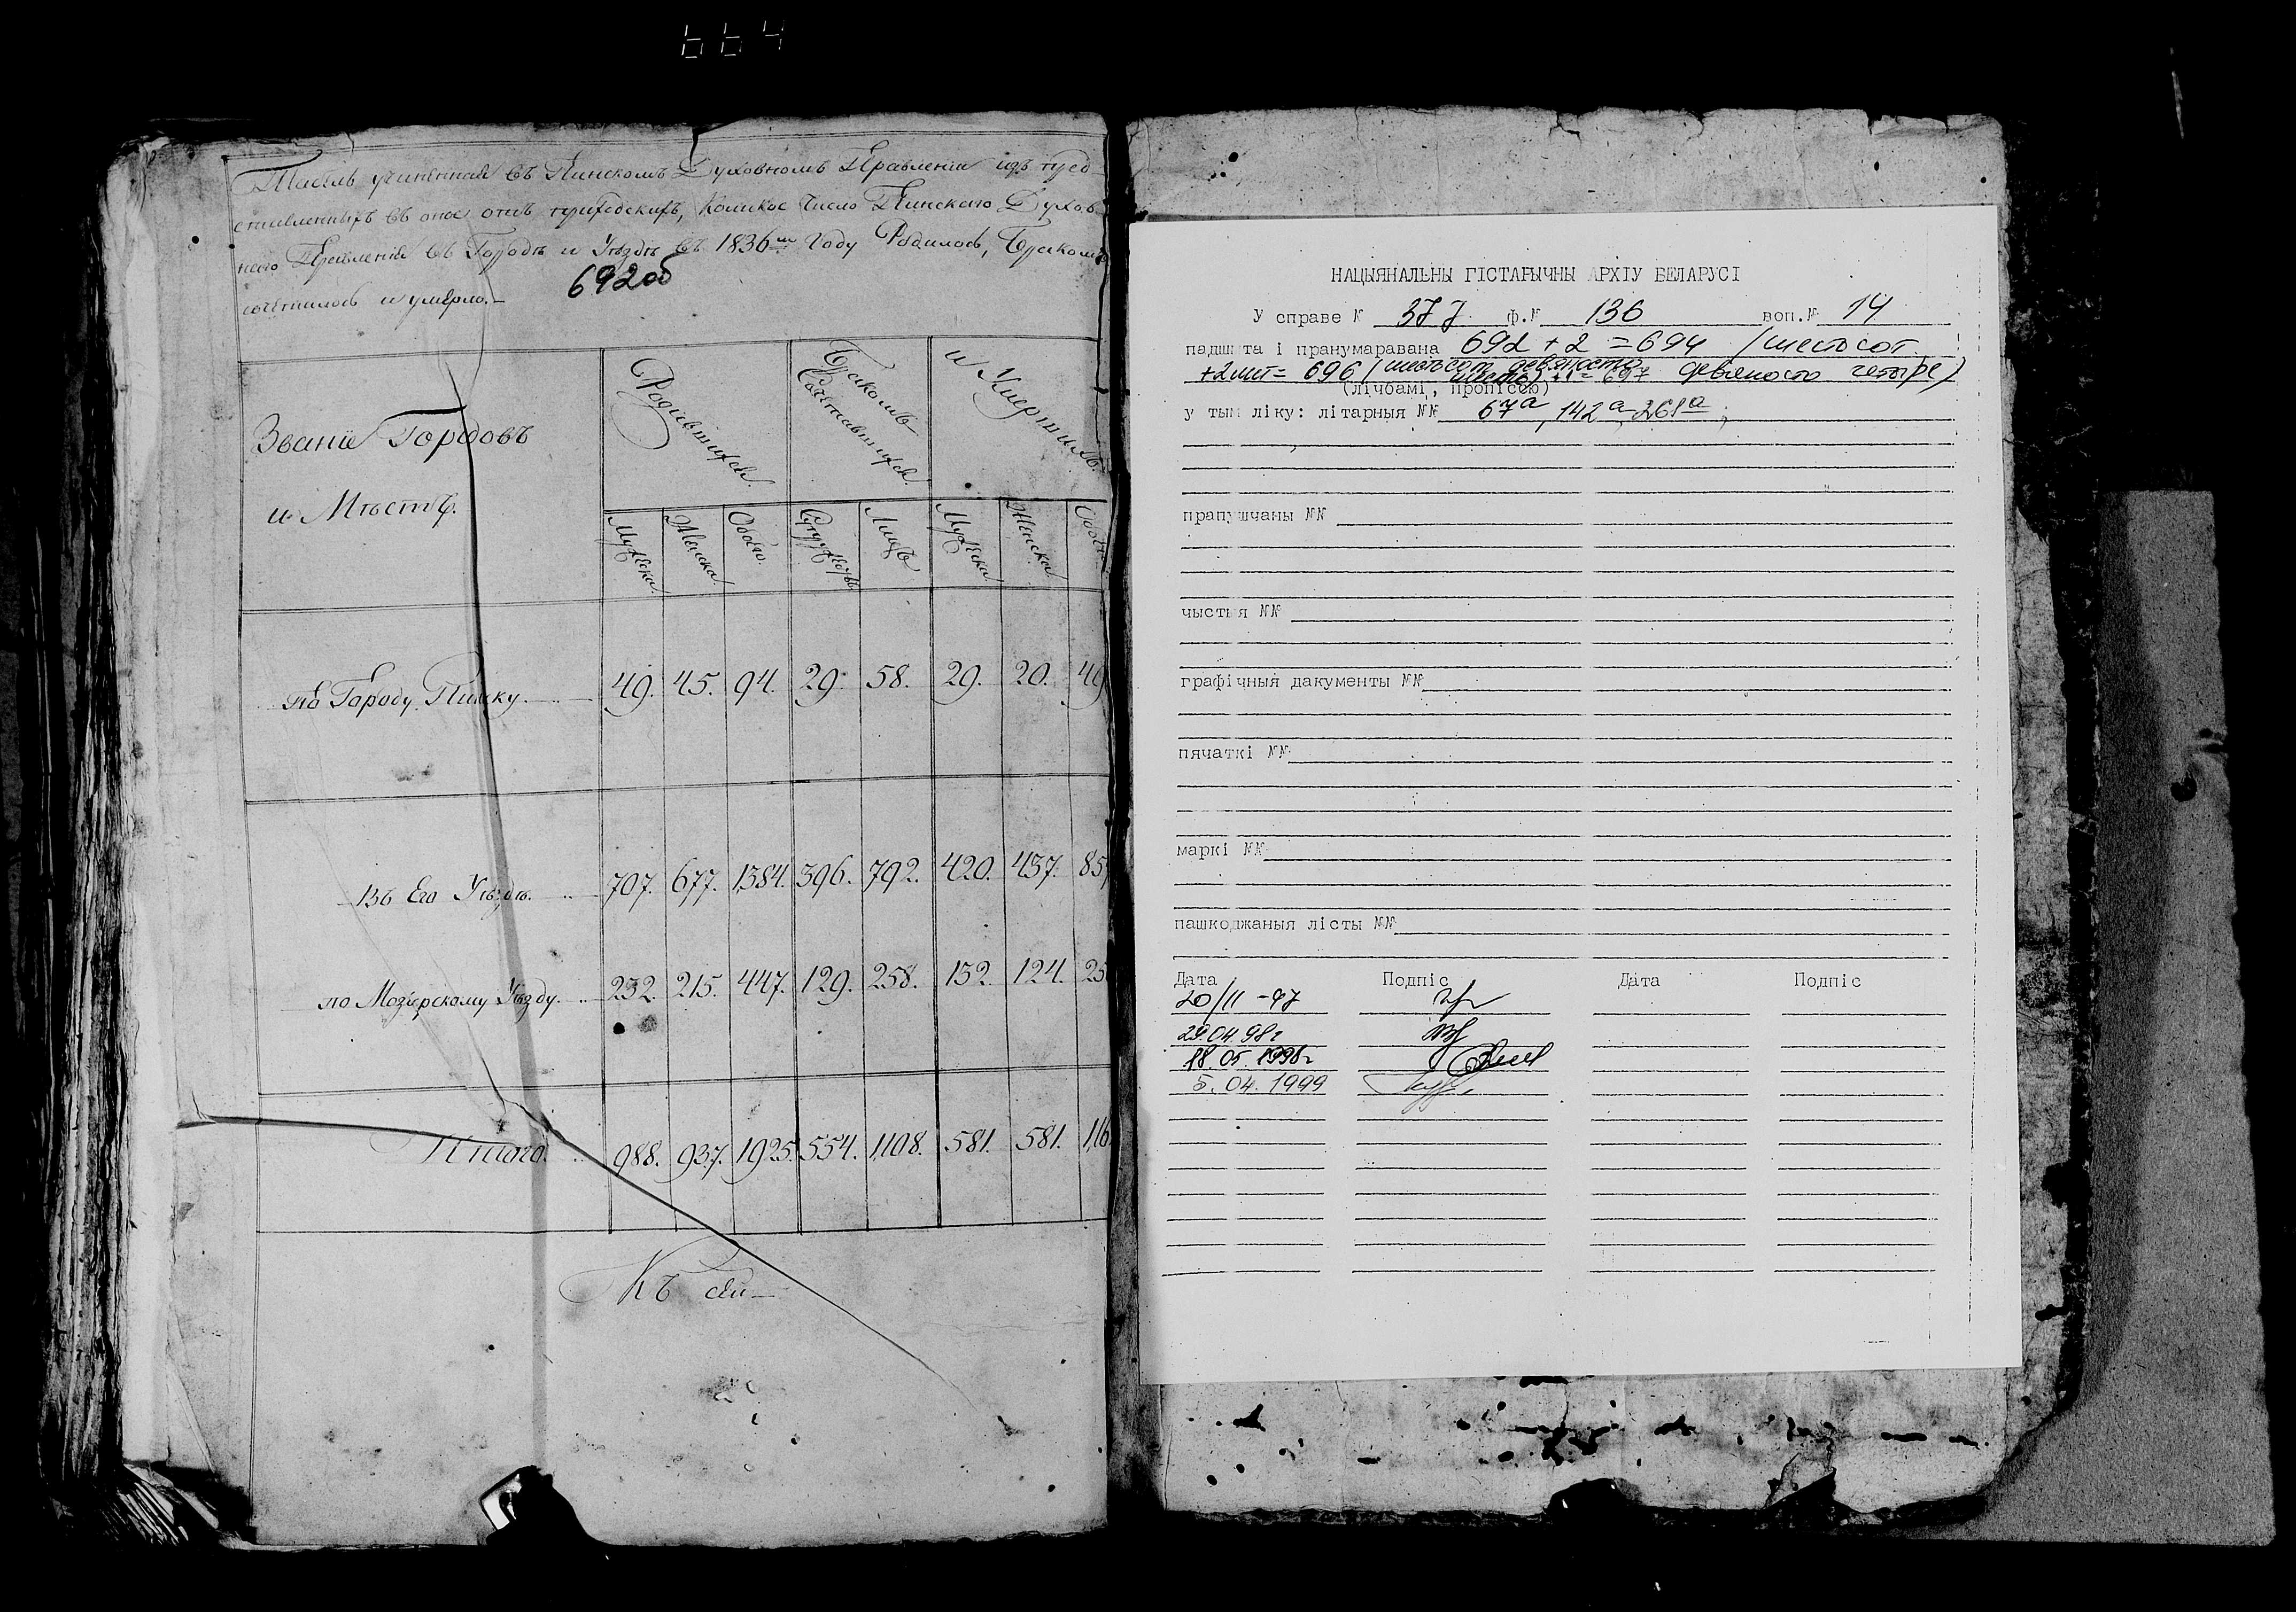 664
Табель учиненная въ Пинскомъ Духовномъ Правленіи изъ пред-
ставленныхъ въ оное отъ приходскихъ, Коликое число Пинскаго Духов-
наго Правленія въ Городѣ и Уѣздѣ въ 1836 м Году Родилось, Бракомъ
сочеталось и умерло.-
692об
Званіе Городовъ
и Мѣстъ.
Родившихся.
Бракомъ Сочетавшихся.
и Умершихъ.
Мужеска. Женска. Обоего. Супружествъ Лицъ Мужеска Женска Обоего
по Городу Пинску. 49. 45. 94. 29. 58. 29. 20. 49
Въ Его Уѣздѣ. 707. 677. 1384. 396. 792. 420. 437. 857
по Мозырскому Уѣзду. 232. 215. 447. 129. 258. 132. 124. 25
Итого. 988. 937. 1925. 554. 1108. 581. 581. 116
Къ сей
НАЦЫЯНАЛЬНЫ ГІСТАРЫЧНЫ АРХІУ БЕЛАРУСІ
У справе № 377 ф.№ 136 воп.№ 14
падшыта і пранумаравана 692 + 2 = 694 (шестьсот
+2лит = 696 (шестьсот девяносто шесть) +1 = 697 девяносто четыре)
(лічбамі, пропісею)
у тым ліку: літарныя №№ 67а, 142а, 261а;
прапушчаны №№
чыстыя №№
графічныя дакументы №№
пячаткі №№
маркі №№
пашкоджаныя лісты №№
Дата Подпіс Дата Подпіс
20/11 -97
29.04.98г
18.05.1998г
5.04.1999